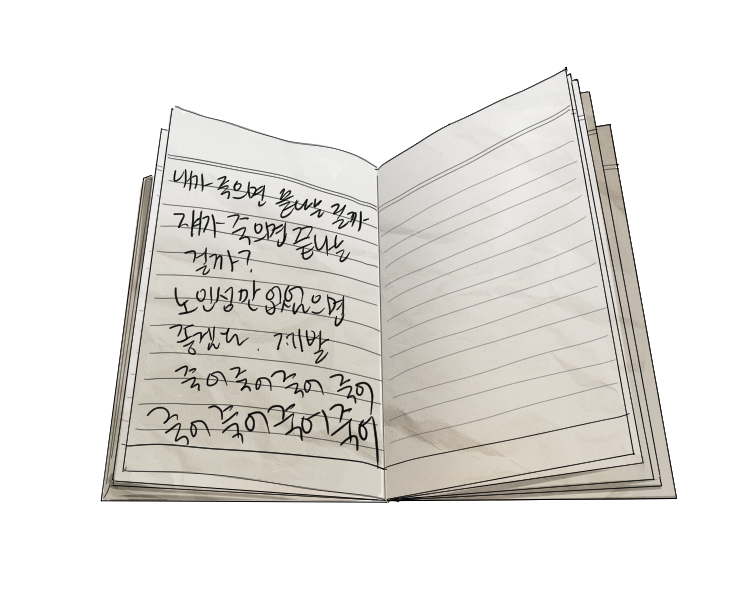 내가 죽으면 끝나는 걸까
쟤가 죽으면 끝나는
걸까?
노인성만 없었으면
좋겠다. 제발
죽어 죽어 죽어 죽어
죽어 죽어 죽어 죽어